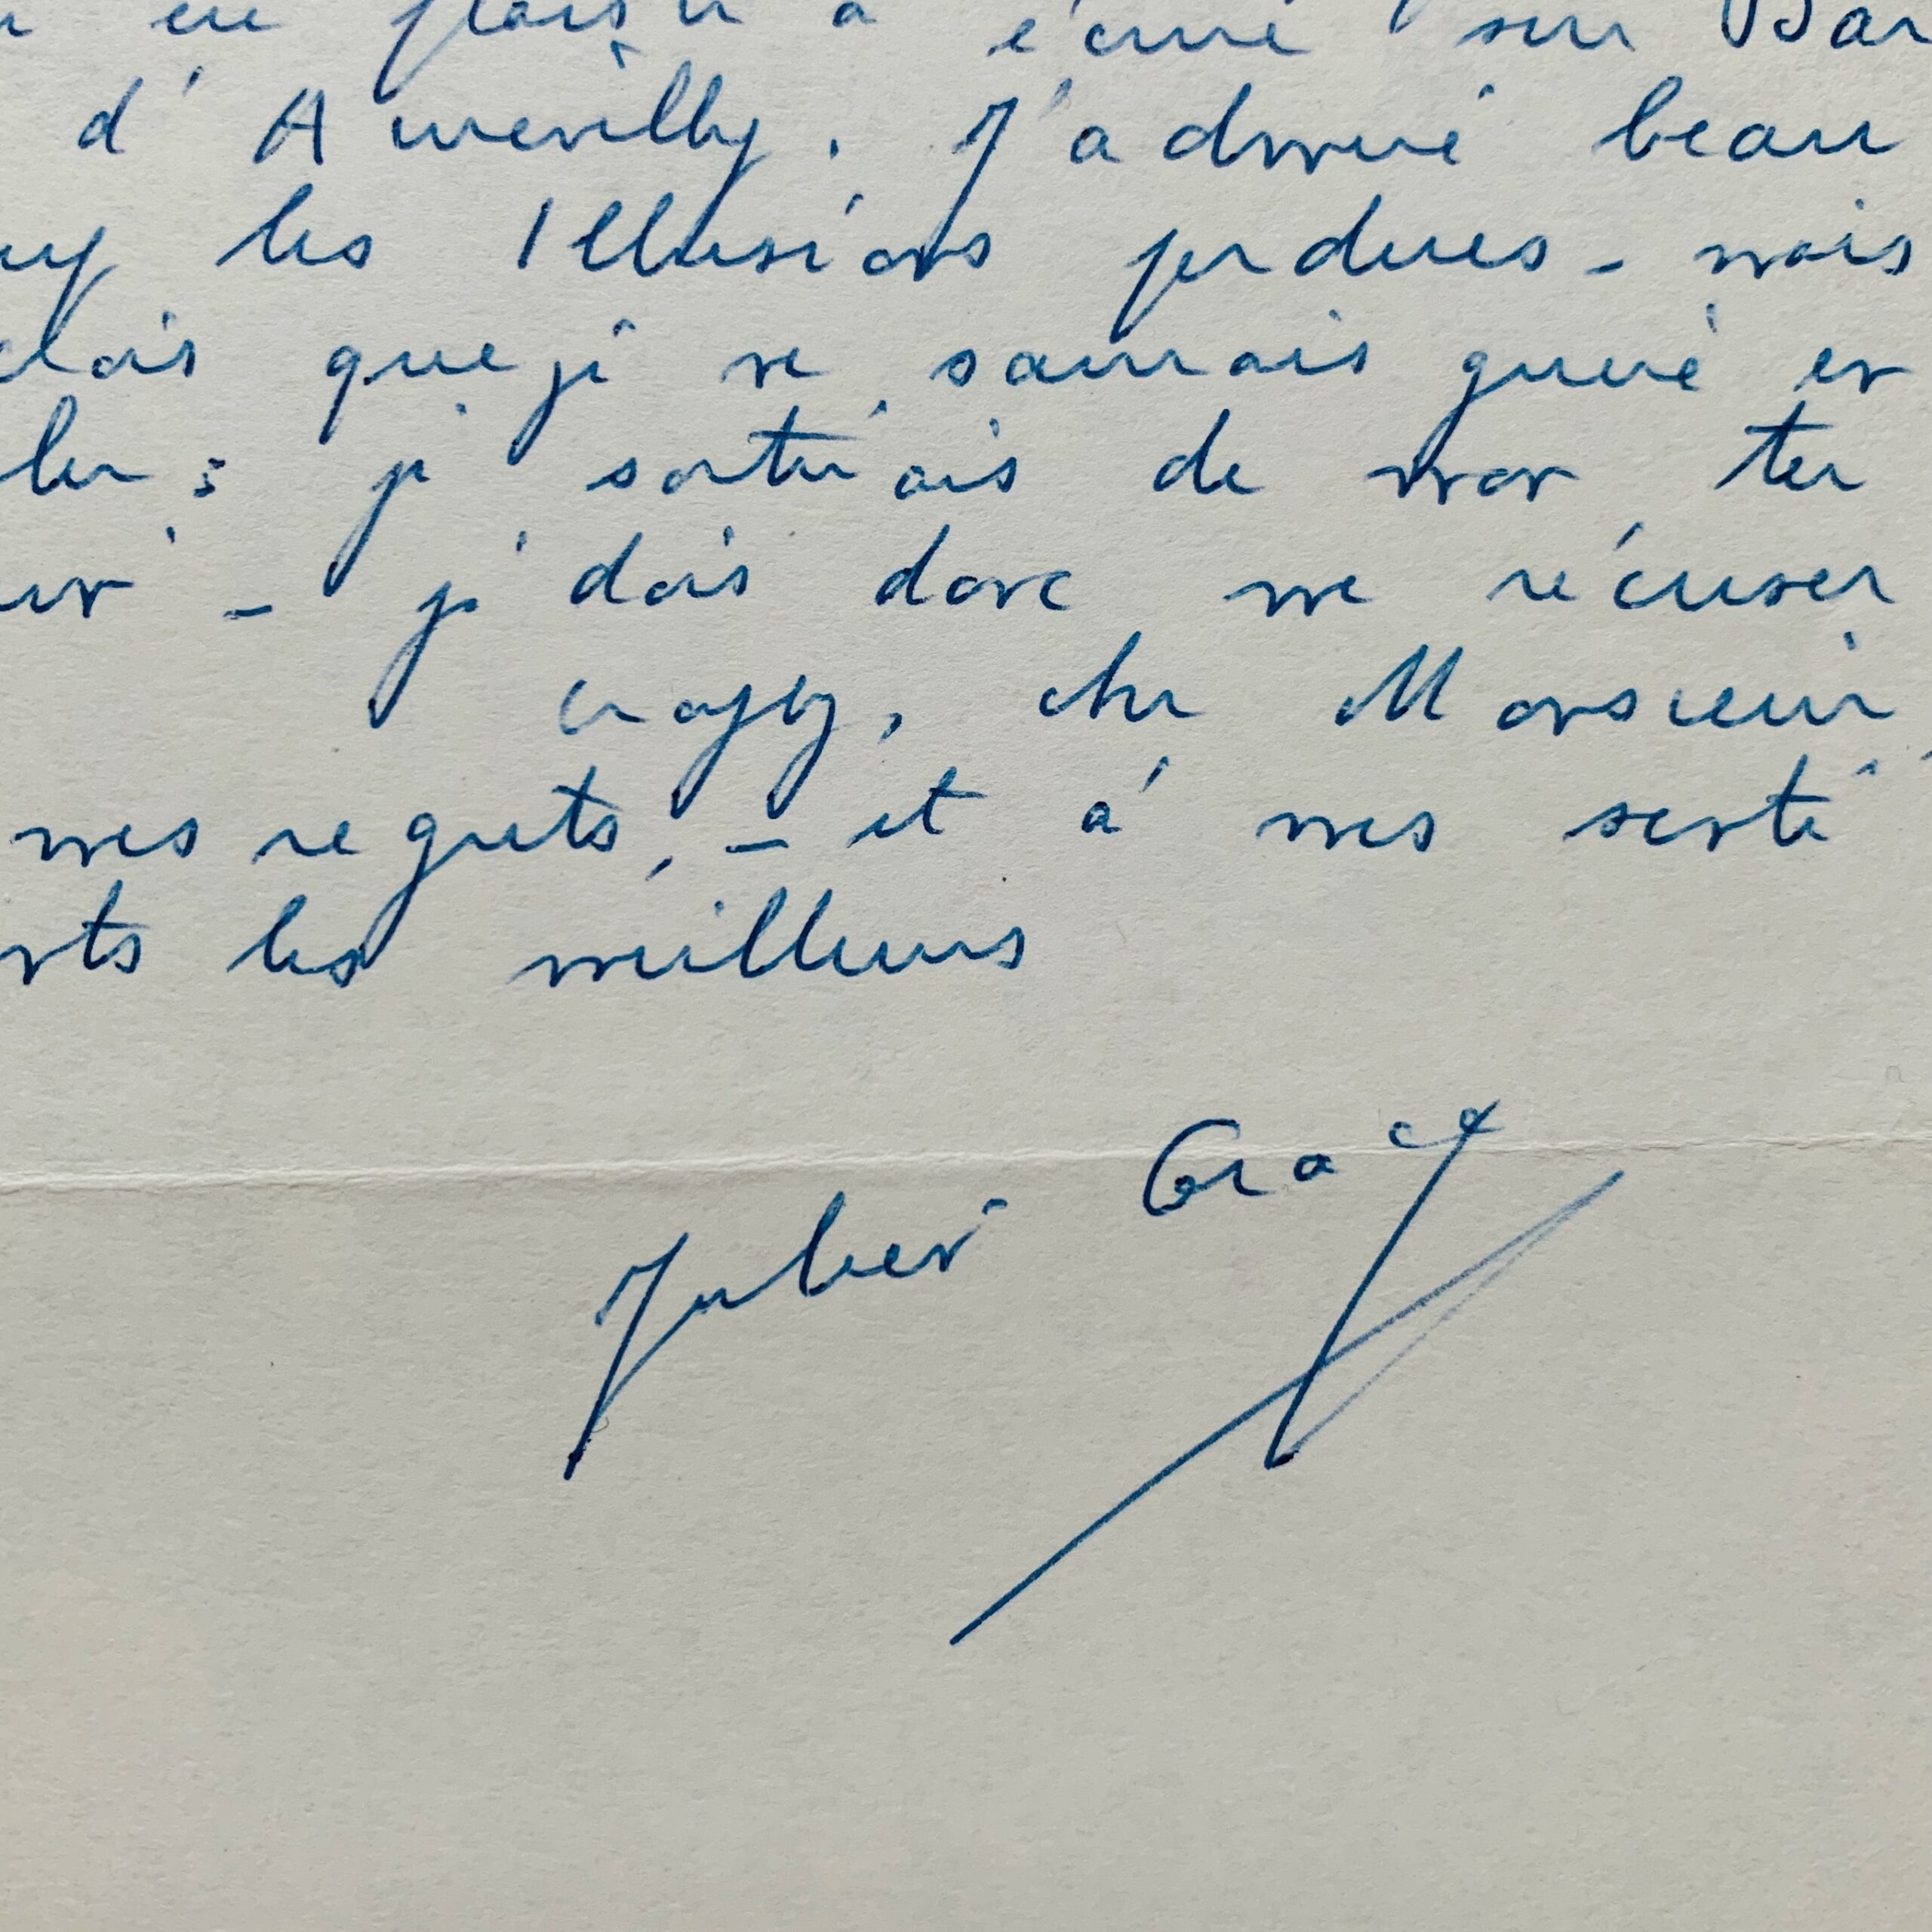 eu plaisir à écrire sur Bar
d'Aurevilly. J'admire beau
les Illusions perdues - mais
que je ne saurais guère en
ler : je sortirais de mon ter
- je dois donc me récuser
croyez, cher Monsieur,
mes regrets, - et à mes senti
nts les meilleurs
Julien Gracq